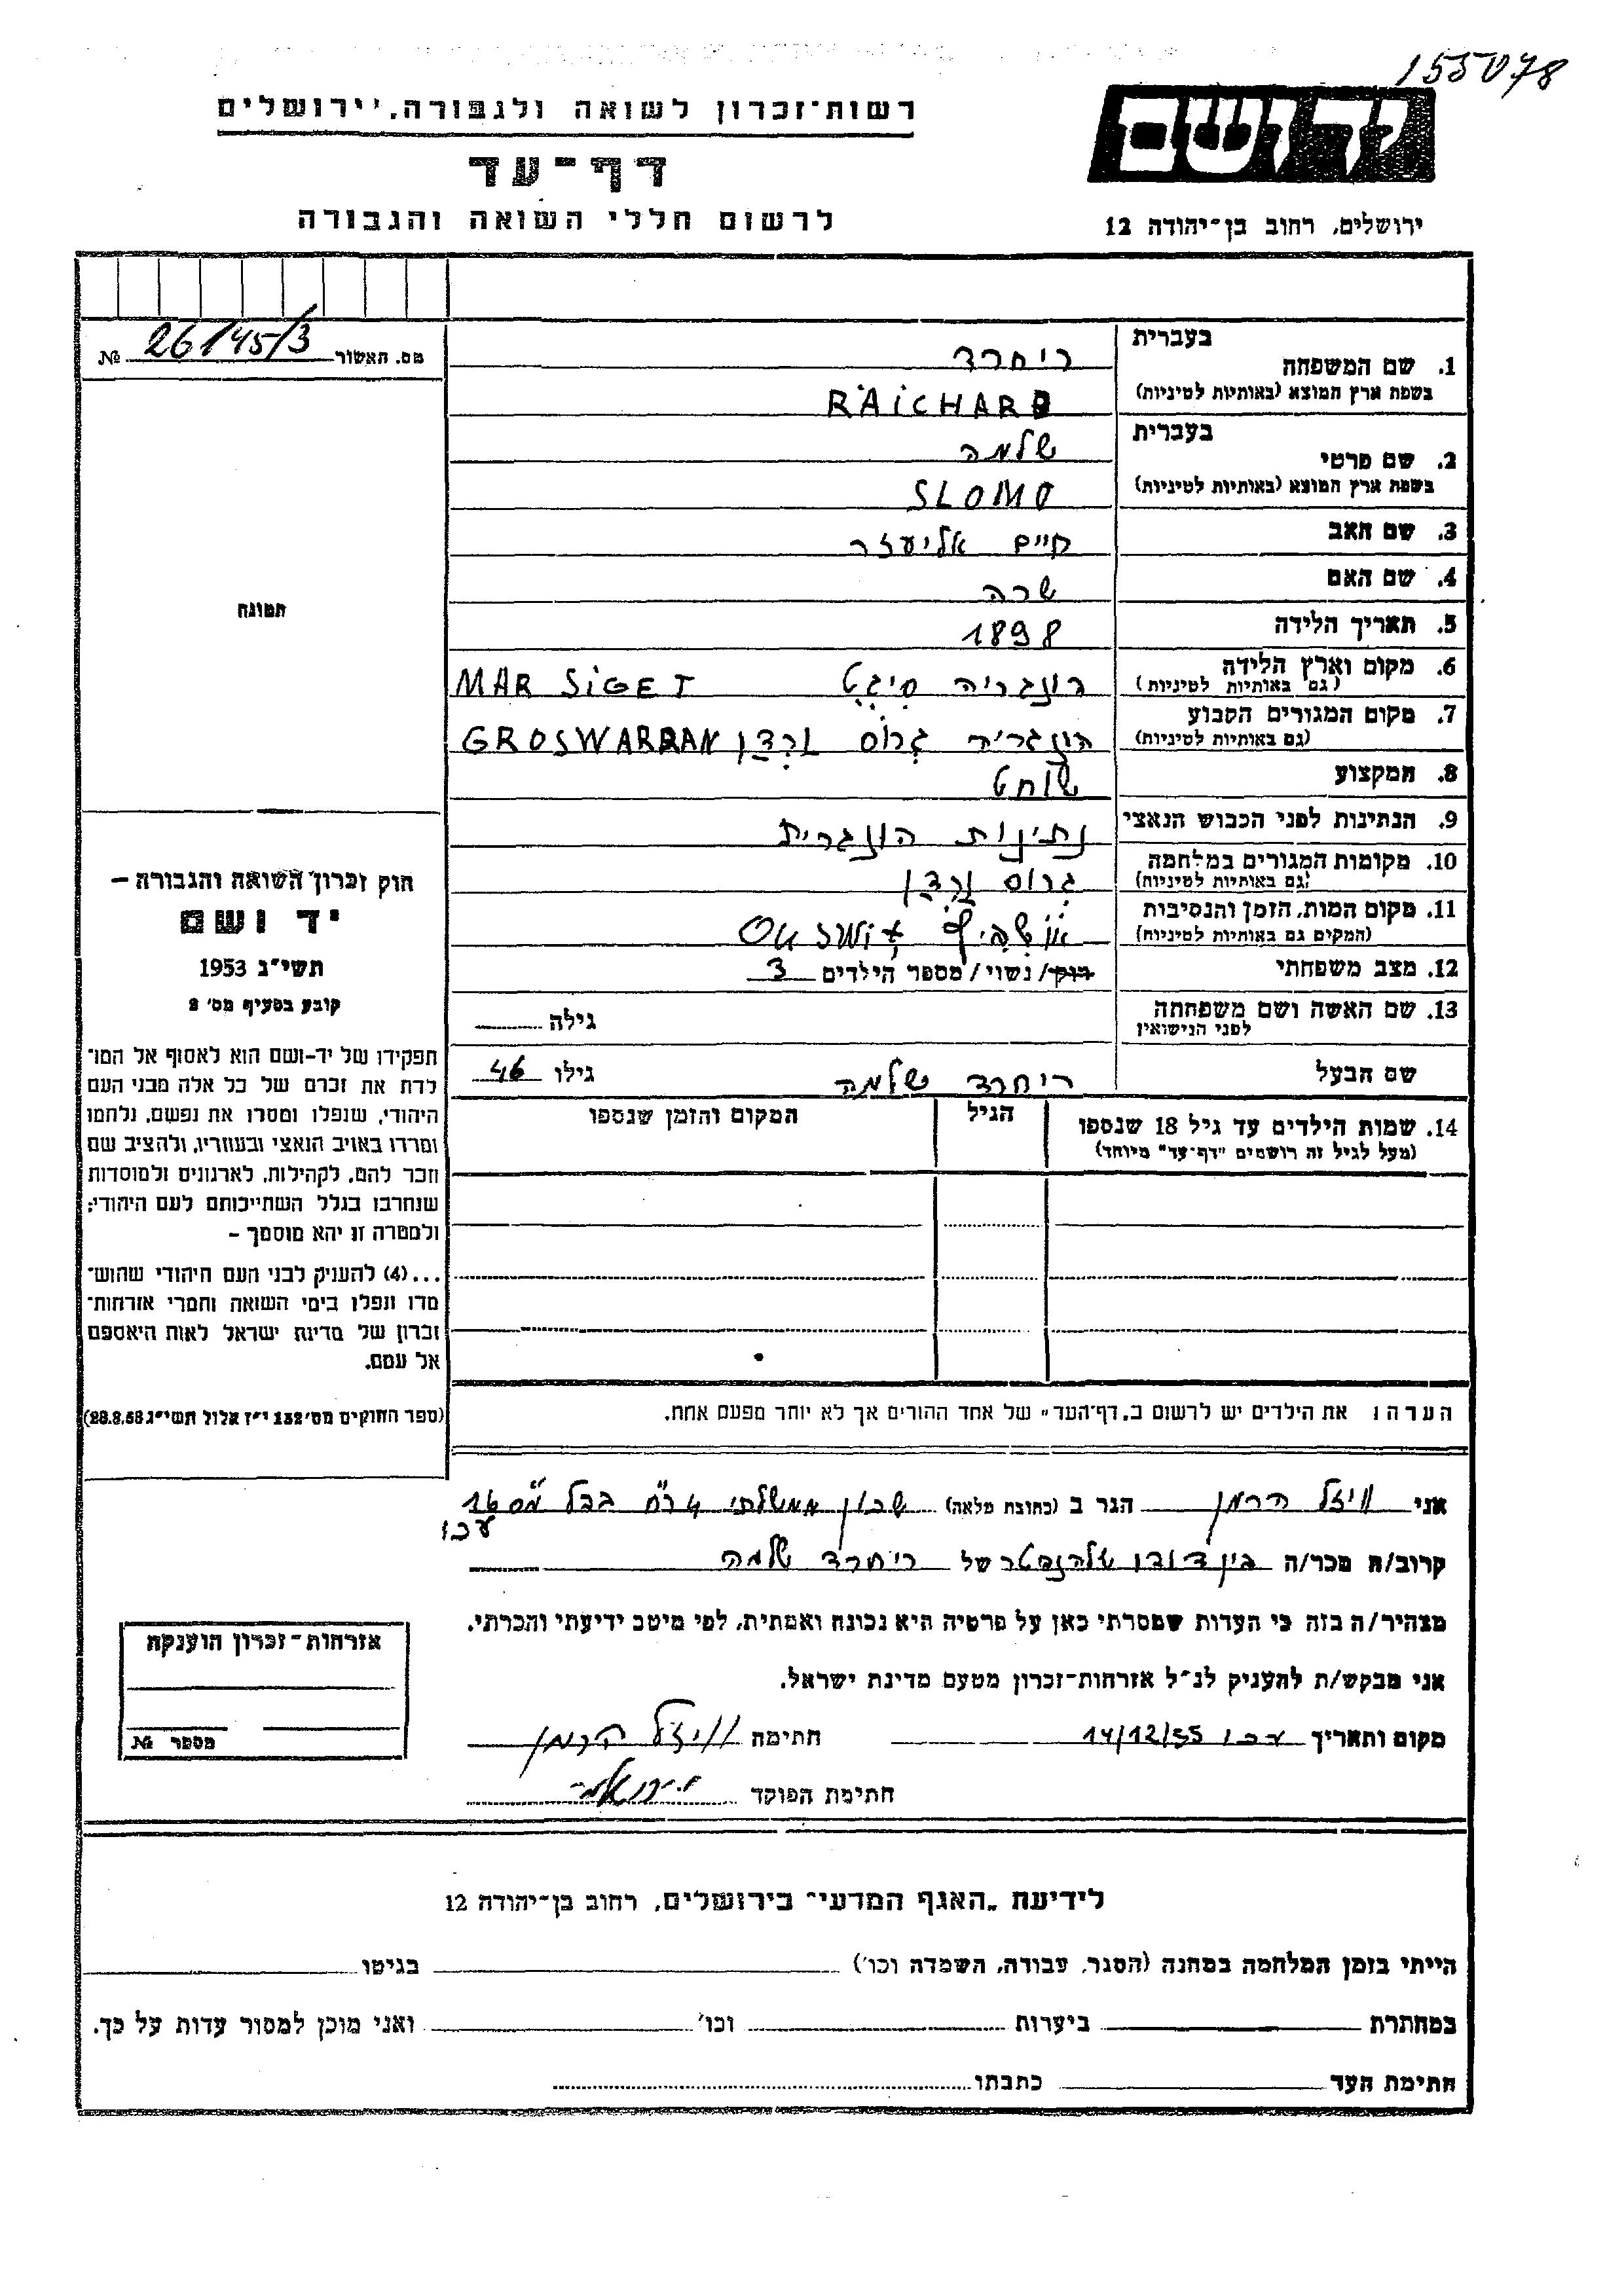 155078
יד ושם
רשות־זכרון לשואה ולגבורה, ירושלים
דף־עד
לרשום חללי השואה והגבורה
ירושלים, רחוב בן־יהודה 12
מס. האשור 26/45/3 №
בעברית
1. שם המשפחה ריחרד
בשפת ארץ המוצא (באותיות לטיניות) RAICHARD
בעברית
2. שם פרטי שלמה
בשפת ארץ המוצא (באותיות לטיניות) SLOMO
3. שם האב חיים אליעזר
4. שם האם שרה
5. תאריך הלידה 1898
6. מקום וארץ הלידה הונגריה סיגט MAR SIGET
(גם באותיות לטיניות)
7. מקום המגורים הקבוע הונגריה גרוס ורדן GROSWARDAN
(גם באותיות לטיניות)
8. המקצוע שוחט
9. הנתינות לפני הכבוש הנאצי נתינות הונגרית
10. מקומות המגורים במלחמה גרוס ורדן
(גם באותיות לטיניות)
11. מקום המות, הזמן והנסיבות
(המקום גם באותיות לטיניות)
12. מצב משפחתי רוק/ נשוי/ מספר הילדים 3
13. שם האשה ושם משפחתה
לפני הנישואין
גילה
שם הבעל ריחרד שלמה גילו 46
14. שמות הילדים עד גיל 18 שנספו
(מעל לגיל זה רושמים "דף־עד" מיוחד)
הגיל
המקום והזמן שנספו
הערה: את הילדים יש לרשום ב„דף־העד" של אחד ההורים אך לא יותר מפעם אחת.
תמונה
חוק זכרון השואה והגבורה –
יד ושם
תשי"ג 1953
קובע בסעיף מס׳ 2
תפקידו של יד-ושם הוא לאסוף אל המו־
לדת את זכרם של כל אלה מבני העם
היהודי, שנפלו ומסרו את נפשם, נלחמו
ומרדו באויב הנאצי ובעוזריו, ולהציב שם
וזכר להם, לקהילות, לארגונים ולמוסדות
שנחרבו בגלל השתייכותם לעם היהודי;
ולמטרה זו יהא מוסמך –
...(4) להעניק לבני העם היהודי שהוש־
מדו ונפלו בימי השואה והמרי אזרחות־
זכרון של מדינת ישראל לאות היאספם
אל עמם.
(ספר החוקים מס׳ 132 י"ז אלול תשי"ג 28.8.53)
אני וויזל הרמן הגר ב (כתובת מלאה) שכון ממשלתי
עכו
קרוב/ה מכר/ה של ריחרד שלמה
מצהיר/ה בזה כי העדות שמסרתי כאן על פרטיה היא נכונה ואמתית, לפי מיטב ידיעתי והכרתי.
אני מבקש/ת להעניק לנ"ל אזרחות־זכרון מטעם מדינת ישראל.
מקום ותאריך עכו 14/12/55 חתימה וויזל הרמן
חתימת הפוקד
אזרחות־זכרון הוענקה
מספר №
לידיעת „האגף המדעי" בירושלים, רחוב בן־יהודה 12
הייתי בזמן המלחמה במחנה (הסגר, עבודה, השמדה וכו׳) בגיטו
במחתרת ביערות וכו׳ ואני מוכן למסור עדות על כך.
חתימת העד כתבתו